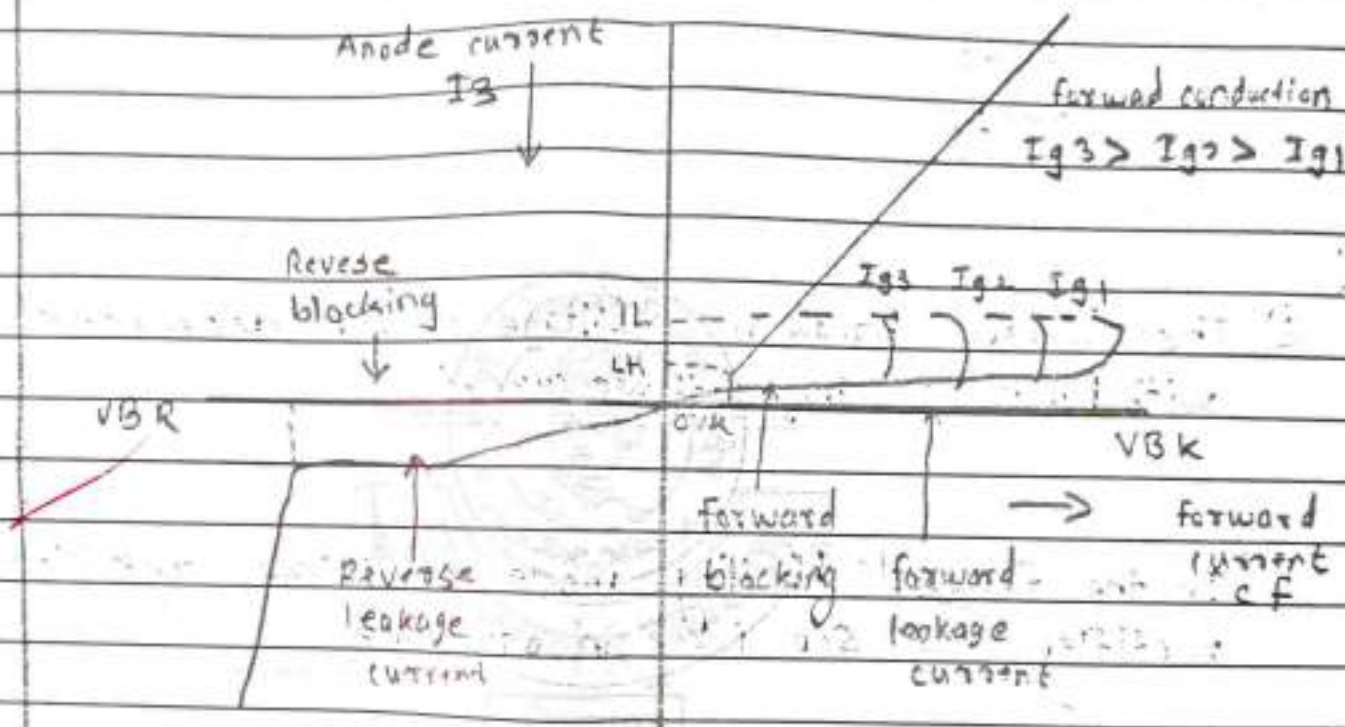 Anode current
I3
forwad conduction
Ig3 > Ig2 > Ig1
Revese
blocking
Ig3 Ig2 Ig1
IL
LH
VBR
VBK
forward
blocking
forward
leakage
current
forward
current
cf
Reverse
leakage
current